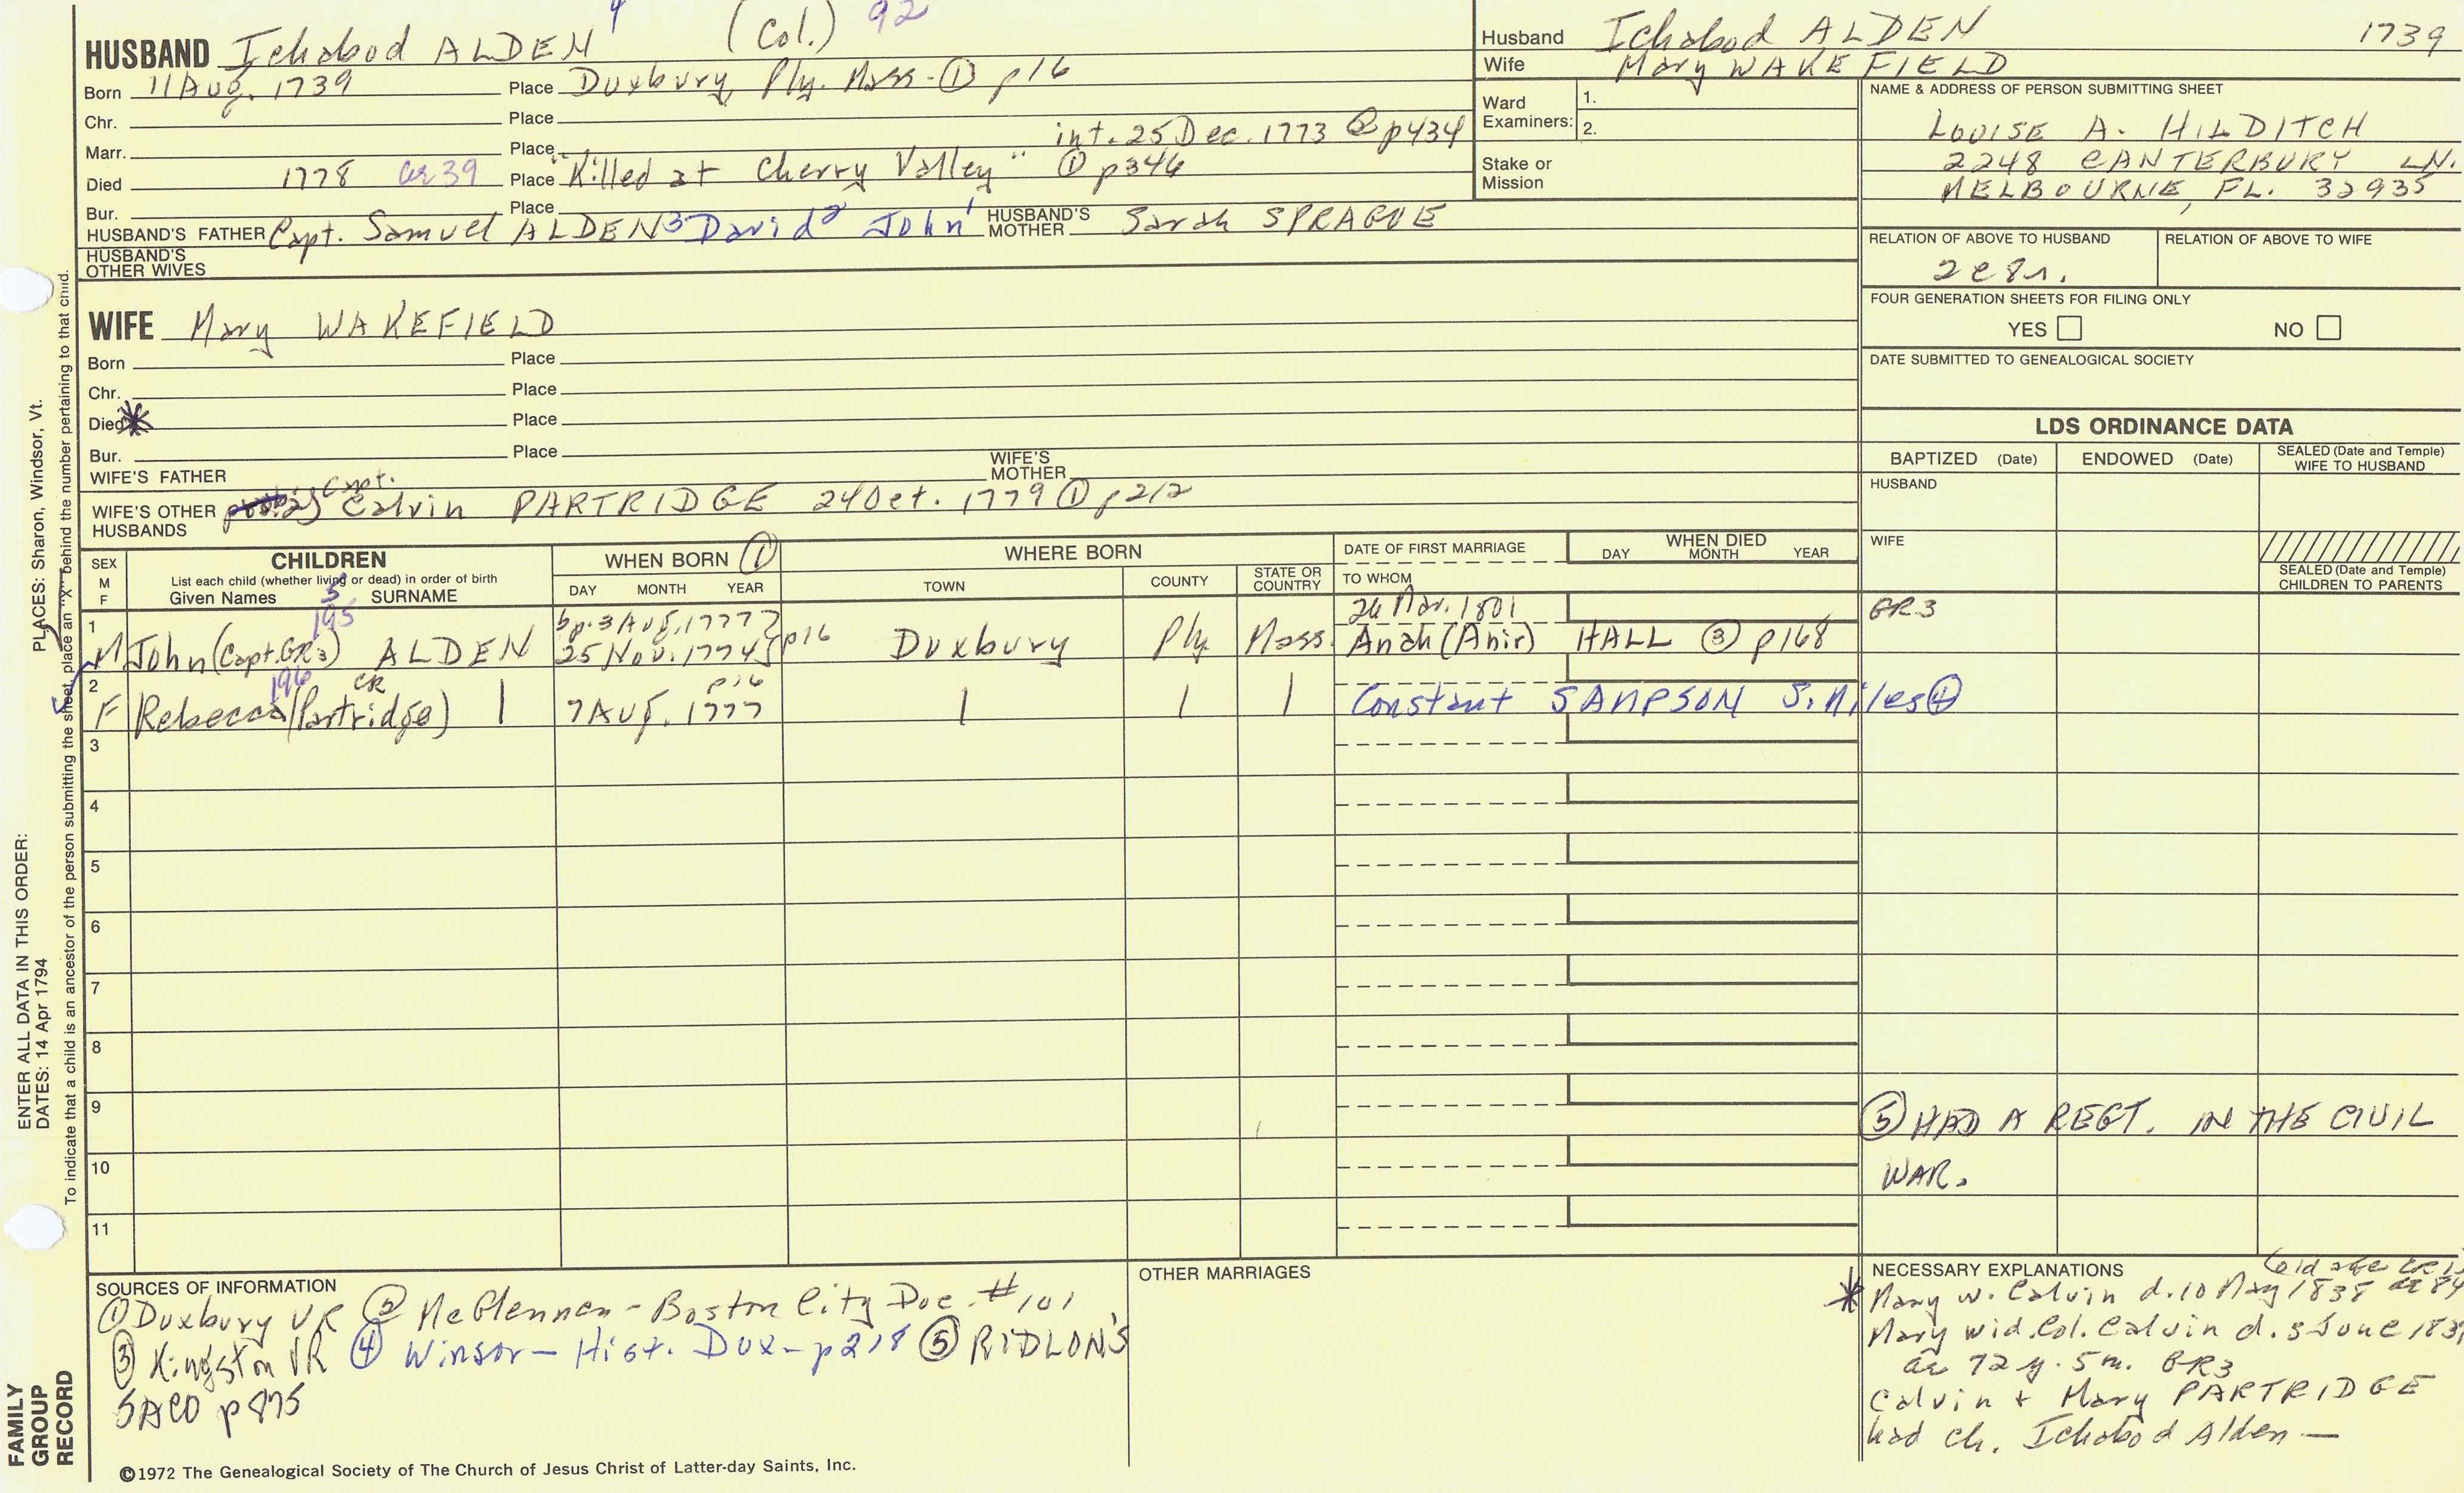 HUSBAND Ichabod ALDEN 4 (Col.) 92
Born 11 Aug. 1739 Place Duxbury, Ply. Mass - ① p16
Chr. Place
Marr. Place int. 25 Dec. 1773 ② p434
Died 1778 ae 39 Place "Killed at Cherry Valley" ① p346
Bur. Place
HUSBAND'S FATHER Capt. Samuel ALDEN 3 David 2 John 1 HUSBAND'S MOTHER Sarah SPRAGUE
HUSBAND'S OTHER WIVES
Husband Ichabod ALDEN 1739
Wife Mary WAKEFIELD
Ward Examiners: 1.
2.
Stake or Mission
NAME & ADDRESS OF PERSON SUBMITTING SHEET
LOUISE A. HILDITCH
2248 CANTERBURY LN.
MELBOURNE, FL. 32935
RELATION OF ABOVE TO HUSBAND RELATION OF ABOVE TO WIFE
FOUR GENERATION SHEETS FOR FILING ONLY
YES NO
DATE SUBMITTED TO GENEALOGICAL SOCIETY
WIFE Mary WAKEFIELD
Born Place
Chr. Place
Died * Place
Bur. Place
WIFE'S FATHER WIFE'S MOTHER
WIFE'S OTHER HUSBANDS Capt. Calvin PARTRIDGE 24 Oct. 1779 ① p212
LDS ORDINANCE DATA
BAPTIZED (Date) ENDOWED (Date) SEALED (Date and Temple) WIFE TO HUSBAND
HUSBAND
WIFE
SEALED (Date and Temple) CHILDREN TO PARENTS
SEX M F CHILDREN WHEN BORN ① WHERE BORN DATE OF FIRST MARRIAGE WHEN DIED
List each child (whether living or dead) in order of birth
Given Names 5 SURNAME DAY MONTH YEAR TOWN COUNTY STATE OR COUNTRY TO WHOM DAY MONTH YEAR
195 bp. 3 Aug. 1777 26 Mar. 1801 GR3
1 M John (Capt. GR3) ALDEN 25 Nov. 1774 p16 Duxbury Ply. Mass. Anah (Anir) HALL ③ p168
196 CR p16
2 F Rebecca (Partridge) 7 Aug. 1777 Constant SAMPSON S. Miles ④
3
4
5
6
7
8
9
10
11
⑤ HAD A REGT. IN THE CIVIL
WAR.
SOURCES OF INFORMATION
① Duxbury VR ② McGlennen - Boston City Doc. #101
③ Kingston VR ④ Winsor - Hist. Dux - p218 ⑤ RIDLON'S
SACO p875
OTHER MARRIAGES
NECESSARY EXPLANATIONS
(old age
* Mary w. Calvin d. 10 May 1838 ae 84
Mary wid. Col. Calvin d. 5 June
ae 72 y. 5 m. GR3
Calvin + Mary PARTRIDGE
had ch. Ichabod Alden —
©1972 The Genealogical Society of The Church of Jesus Christ of Latter-day Saints, Inc.
FAMILY GROUP RECORD
ENTER ALL DATA IN THIS ORDER:
DATES: 14 Apr 1794
PLACES: Sharon, Windsor, Vt.
To indicate that a child is an ancestor of the person submitting the sheet, place an "X" behind the number pertaining to that child.